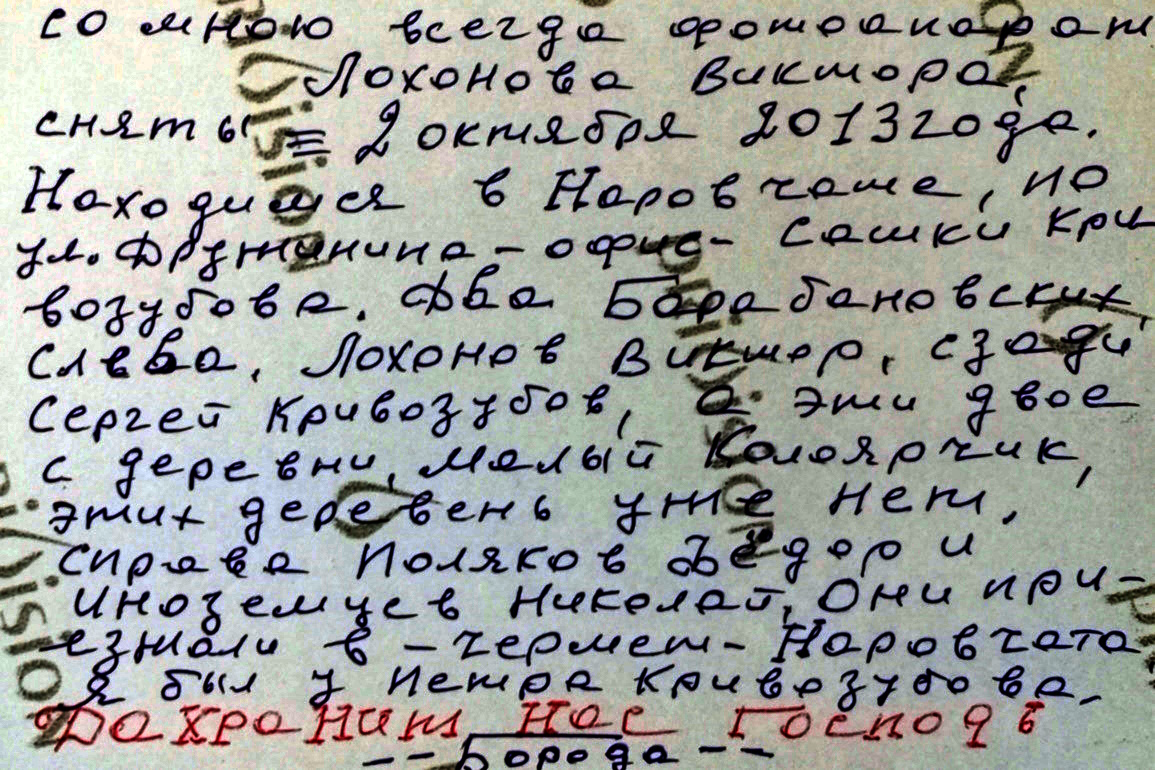 со мною всегда фотоапарат
Лохонова Виктора,
сняты = 2 октября 2013 года.
Находимся в Наровчате, по
ул. Дружинина - офис - Сашки Кри
возубова. Два Барабановских
слева, Лохонов Виктор, сзади
Сергей Кривозубов, а эти двое
с деревни, Малый Колоярчик,
этих деревень уже нет,
справа Поляков Фёдор и
Иноземцев Николай, Они при-
езжали в - чермет - Наровчата
я был у Петра Кривозубова.
Да хранит нас Господь
-- Борода --